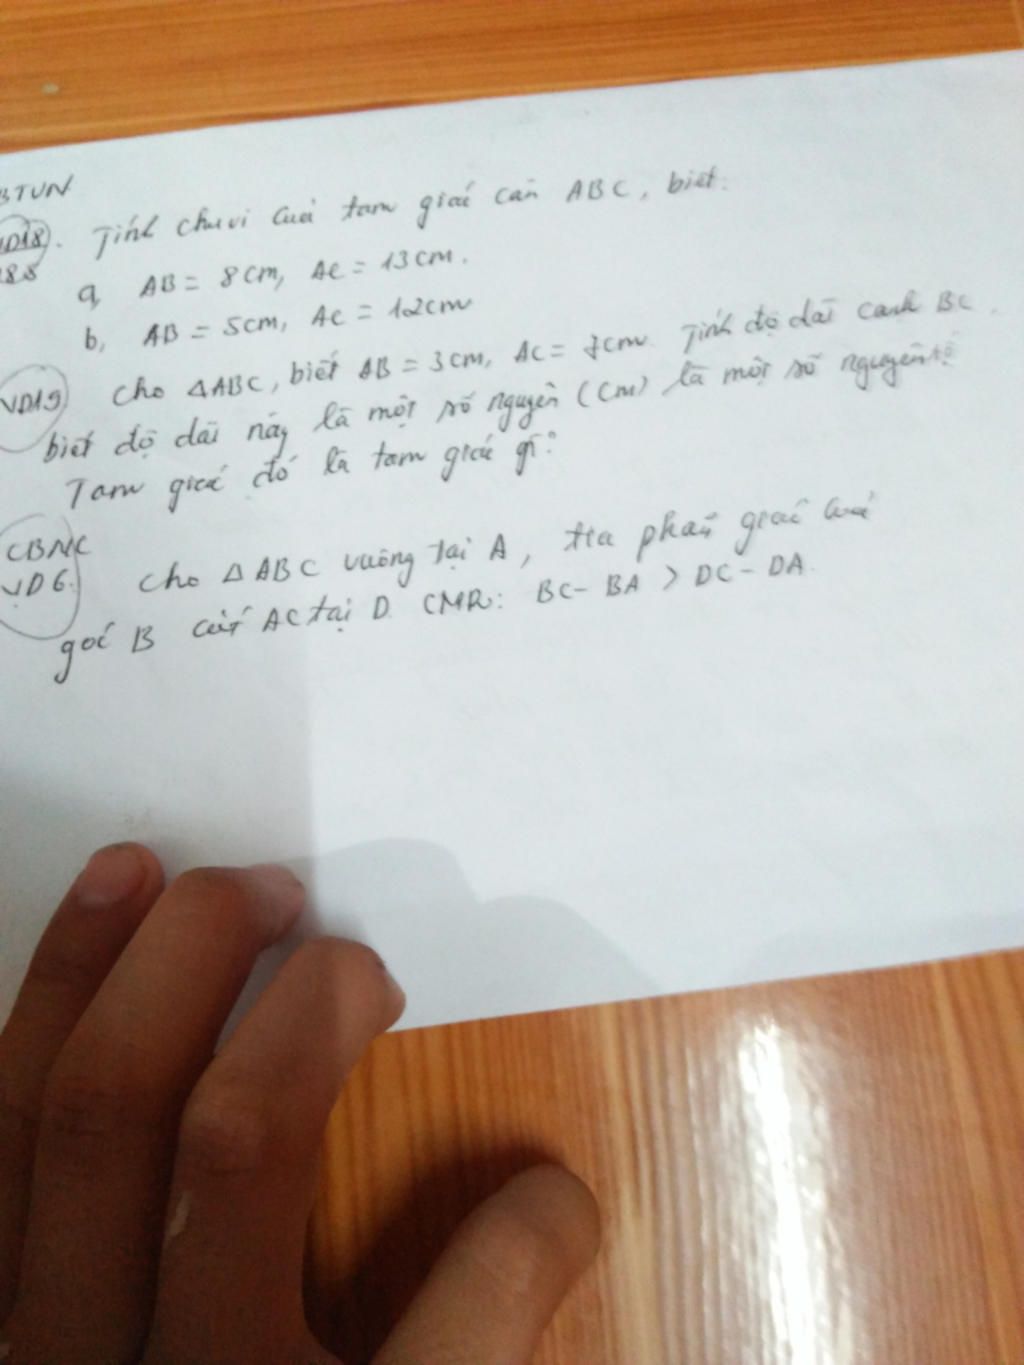 BTUN
VD18. Tính chu vi của tam giác cân ABC, biết:
188
a, AB = 8cm, AC = 13cm.
b, AB = 5cm, AC = 12cm
VD19 Cho △ABC, biết AB = 3cm, AC = 7cm. Tính độ dài cạnh BC.
biết độ dài này là một số nguyên (cm) là một số nguyên tố
Tam giác đó là tam giác gì?
CBNC
VD6. Cho △ABC vuông tại A, tia phân giác của
góc B cắt AC tại D. CMR: BC - BA > DC - DA.